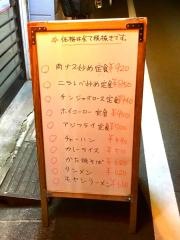 ※ 価格は全て税抜きです。
○ 肉ナス炒め定食 ¥920
○ ニラレバ炒め定食
○ チンジャオロース定食
○ ホイコーロー定食
○ アジフライ定食
○ チャーハン
○ カレーライス
○ かた焼そば
○ ラーメン
○ モヤシラーメン